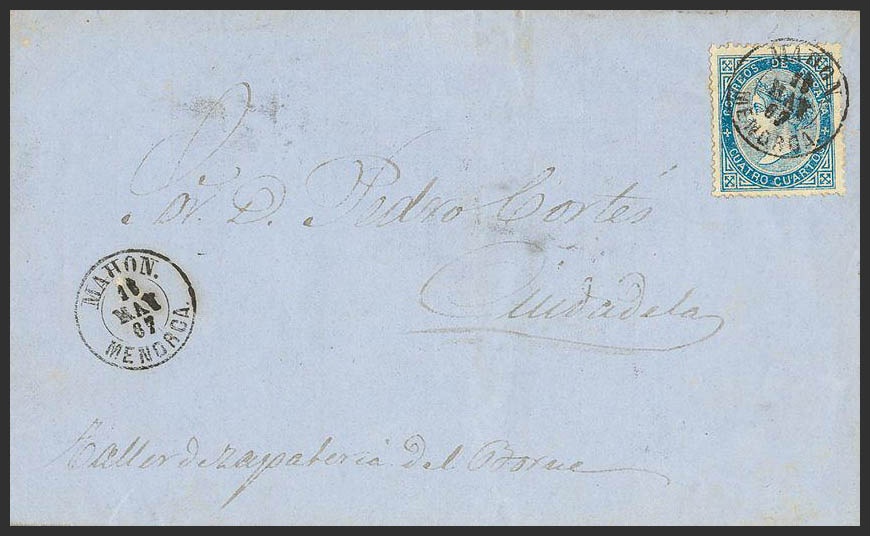 CORREOS DE ESPAÑA
CUATRO CUARTOS
MAHON
MAY
67
MENORCA.
Sor. D. Pedro Cortés
Ciudadela
MAHON.
MAY
67
MENORCA.
Taller de zapateria del Borne